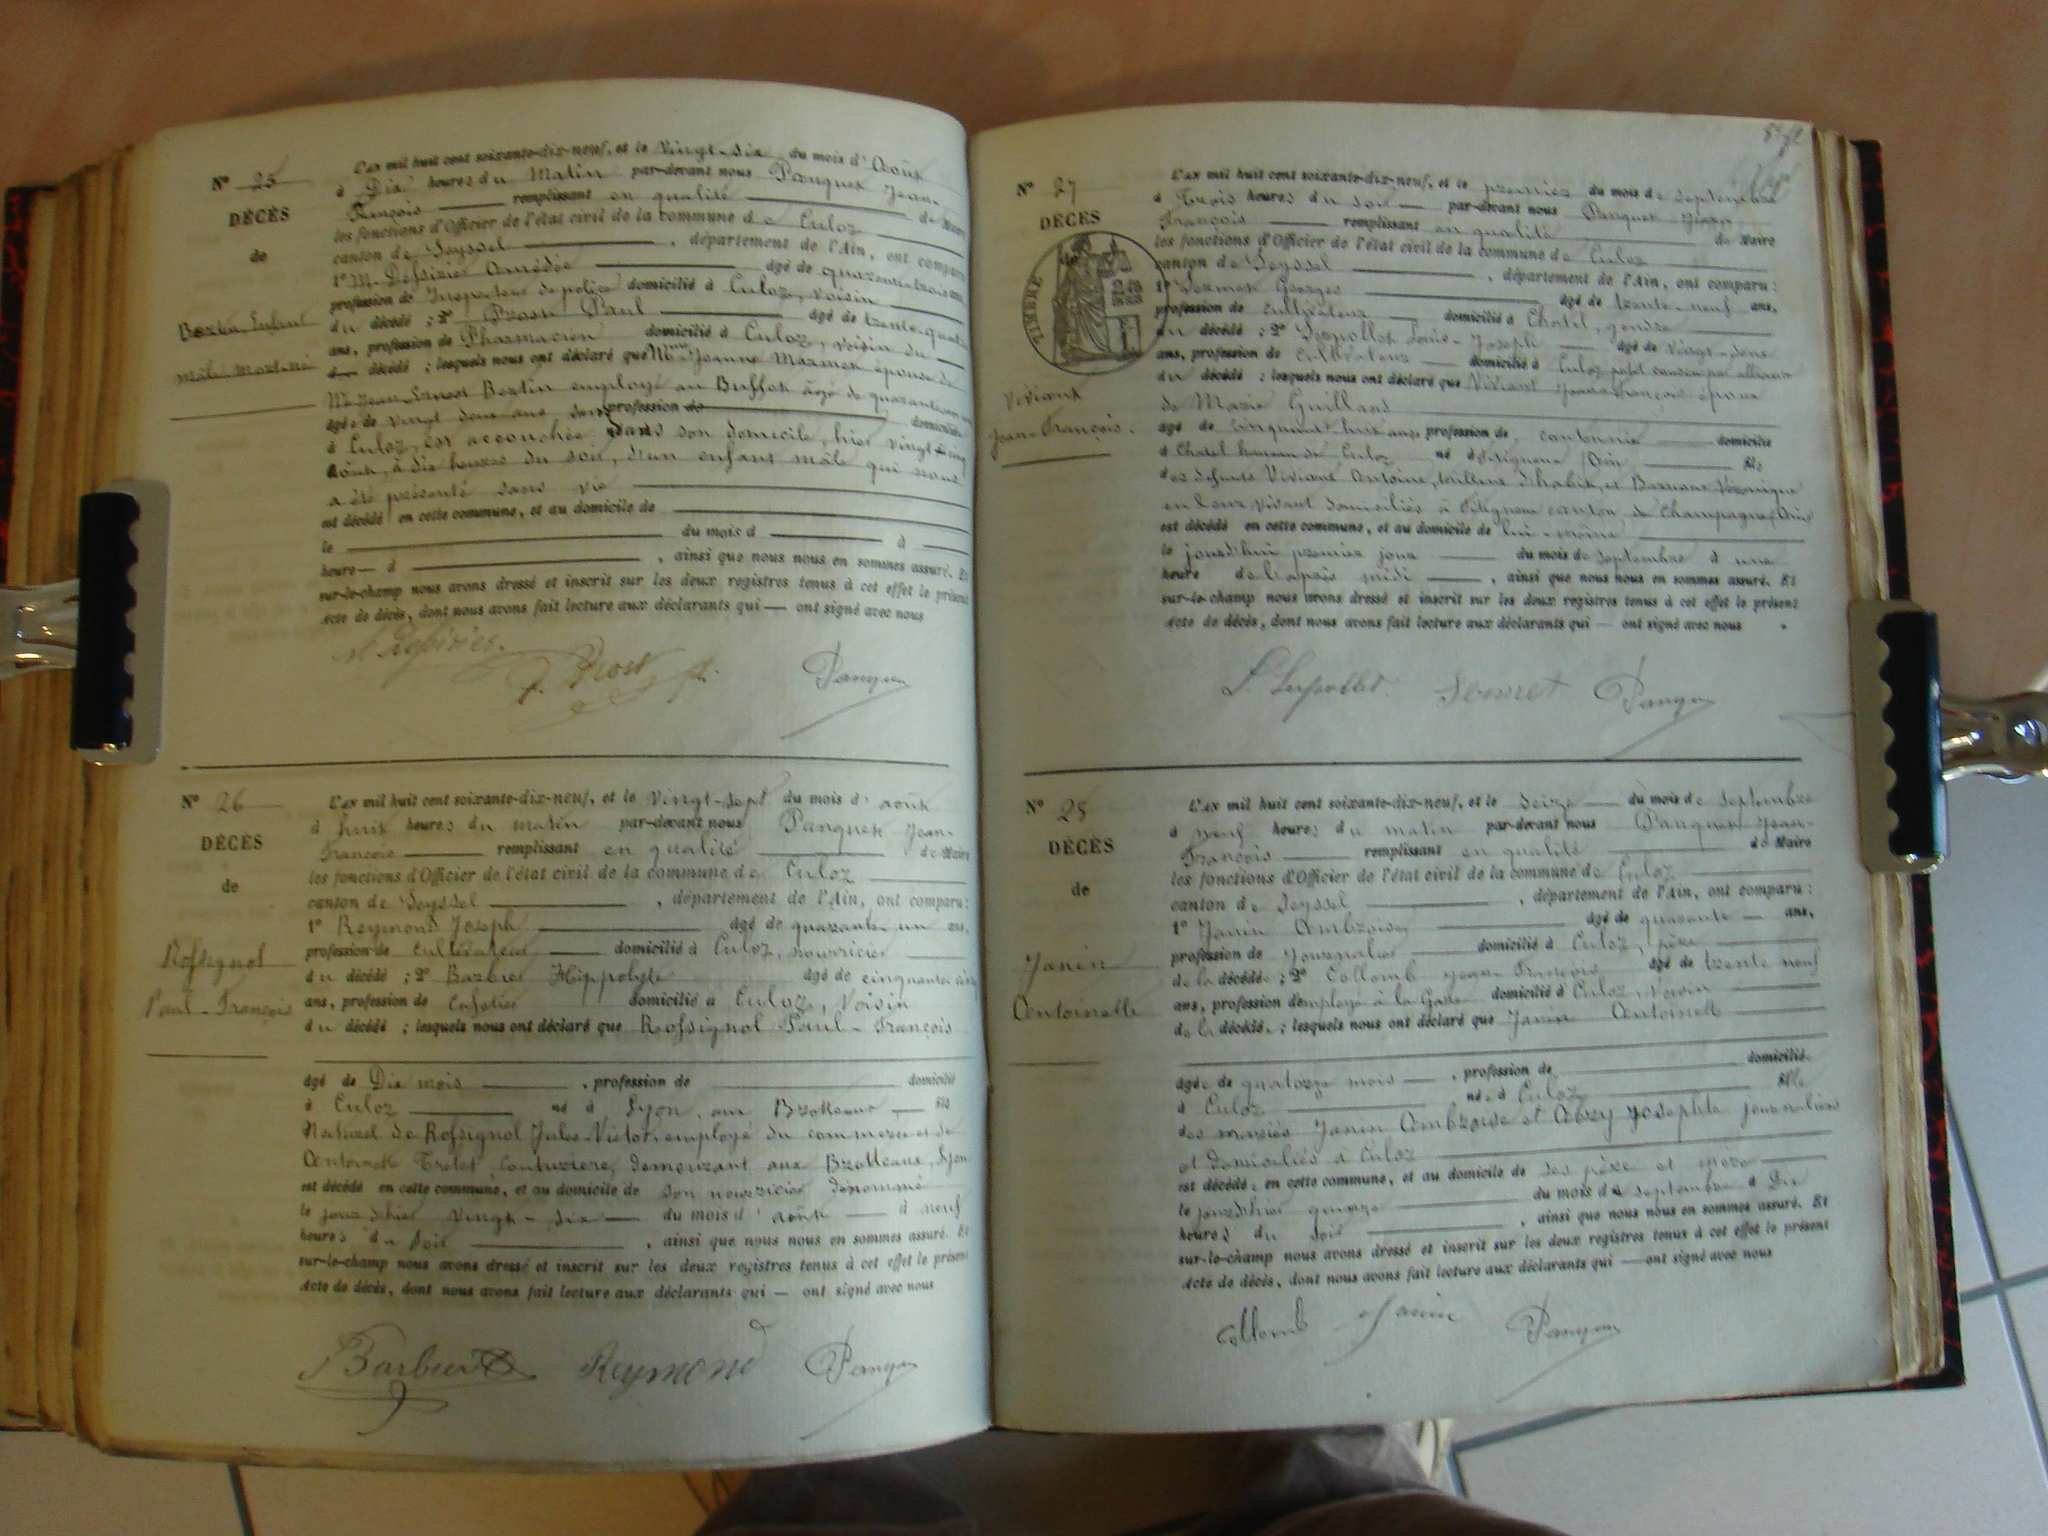 N° 25
DÉCÈS
de
Bertin, Enfant
mâle mort-né
L'an mil huit cent soixante-dix-neuf, et le vingt-six du mois d'Août
à Dix heures du Matin par-devant nous Panquet Jean-
François remplissant en qualité de Maire
les fonctions d'Officier de l'état civil de la commune de Culoz
canton de Seyssel, département de l'Ain, ont comparu
1° M. Amédée âgé de quarante-trois ans,
profession de Inspecteur de police domicilié à Culoz, voisin
du décédé ; 2° Prost Paul âgé de trente-quatre
ans, profession de Pharmacien domicilié à Culoz, voisin du
décédé ; lesquels nous ont déclaré que Mme Jeanne Marmet épouse de
Mr Jean Ernest Bertin employé au Buffet âgé de
âgée de vingt deux ans, sans profession domiciliée
à Culoz, est accouchée dans son domicile, hier vingt-cinq
Août, à dix heures du soir, d'un enfant mâle qui nous
a été présenté sans vie
est décédé en cette commune, et au domicile de
le du mois d à
heure à , ainsi que nous nous en sommes assuré. Et
sur-le-champ nous avons dressé et inscrit sur les deux registres tenus à cet effet le présent
Acte de décès, dont nous avons fait lecture aux déclarants qui — ont signé avec nous
P. Prost
Panquet
N° 26
DÉCÈS
de
Rossignol
Paul-François
L'an mil huit cent soixante-dix-neuf, et le vingt-sept du mois d'août
à huit heures du matin par-devant nous Panquet Jean-
François remplissant en qualité de Maire
les fonctions d'Officier de l'état civil de la commune de Culoz
canton de Seyssel, département de l'Ain, ont comparu :
1° Reymond Joseph âgé de quarante-un ans,
profession de cultivateur domicilié à Culoz, nourricier
du décédé ; 2° Barbier Hippolyte âgé de cinquante-cinq
ans, profession de Cafetier domicilié à Culoz, Voisin
du décédé ; lesquels nous ont déclaré que Rossignol Paul-François
âgé de Dix mois, profession de domicilié
à Culoz né à Lyon, aux Brotteaux fils
Naturel de Rossignol Jules-Victor, employé du commerce et de
Antoinette Couturière, demeurant aux Brotteaux, Lyon
est décédé en cette commune, et au domicile de son nourricier dénommé
le jour d'hier vingt-six du mois d'août à neuf
heures du soir, ainsi que nous nous en sommes assuré. Et
sur-le-champ nous avons dressé et inscrit sur les deux registres tenus à cet effet le présent
Acte de décès, dont nous avons fait lecture aux déclarants qui — ont signé avec nous
Barbier Reymond Panquet
N° 27
DÉCÈS
TIMBRE
Viviant
Jean-François.
L'an mil huit cent soixante-dix-neuf, et le premier du mois de septembre
à Trois heures du soir par-devant nous Panquet Jean
François remplissant en qualité de Maire
les fonctions d'Officier de l'état civil de la commune de Culoz
canton de Seyssel, département de l'Ain, ont comparu :
1° Georges âgé de trente-neuf ans,
profession de cultivateur domicilié à Chatel, gendre
du décédé ; 2° Serpollet Louis-Joseph âgé de vingt-deux
ans, profession de cultivateur domicilié à Culoz petit cousin par alliance
du décédé ; lesquels nous ont déclaré que Viviant Jean-François époux
de Marie Guilland
âgé de cinquante-huit ans, profession de cantonnier domicilié
à Chatel hameau de Culoz né à (Ain) fils
des défunts Viviant Antoine, tailleur d'habits, et Véronique
en leur vivant domiciliés à canton de Champagne (Ain)
est décédé en cette commune, et au domicile de lui-même
le jourd'hui premier jour du mois de septembre à une
heure de l'après midi, ainsi que nous nous en sommes assuré. Et
sur-le-champ nous avons dressé et inscrit sur les deux registres tenus à cet effet le présent
Acte de décès, dont nous avons fait lecture aux déclarants qui — ont signé avec nous
L. Serpollet. Panquet
N° 28
DÉCÈS
de
Janin
Antoinette
L'an mil huit cent soixante-dix-neuf, et le seize du mois de septembre
à neuf heures du matin par-devant nous Panquet Jean-
François remplissant en qualité de Maire
les fonctions d'Officier de l'état civil de la commune de Culoz
canton de Seyssel, département de l'Ain, ont comparu :
1° Janin Ambroise âgé de quarante ans,
profession de Journalier domicilié à Culoz, père
de la décédée ; 2° Collomb Jean-François âgé de trente neuf
ans, profession d'employé à la Gare domicilié à Culoz, voisin
de la décédée ; lesquels nous ont déclaré que Janin Antoinette
âgée de quatorze mois, profession de domiciliée
à Culoz née à Culoz fille
des mariés Janin Ambroise et Josephte journaliers
et domiciliés à Culoz
est décédée en cette commune, et au domicile de ses père et mère
le jour d'hier quinze du mois de septembre à Dix
heures du soir, ainsi que nous nous en sommes assuré. Et
sur-le-champ nous avons dressé et inscrit sur les deux registres tenus à cet effet le présent
Acte de décès, dont nous avons fait lecture aux déclarants qui — ont signé avec nous
Collomb Janin Panquet